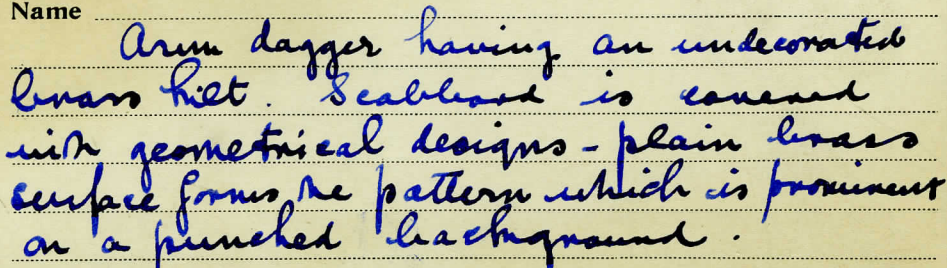 Name
Arm dagger having an undecorated
brass hilt. Scabbard is covered
with geometrical designs - plain brass
surface forms the pattern which is prominent
on a punched background.